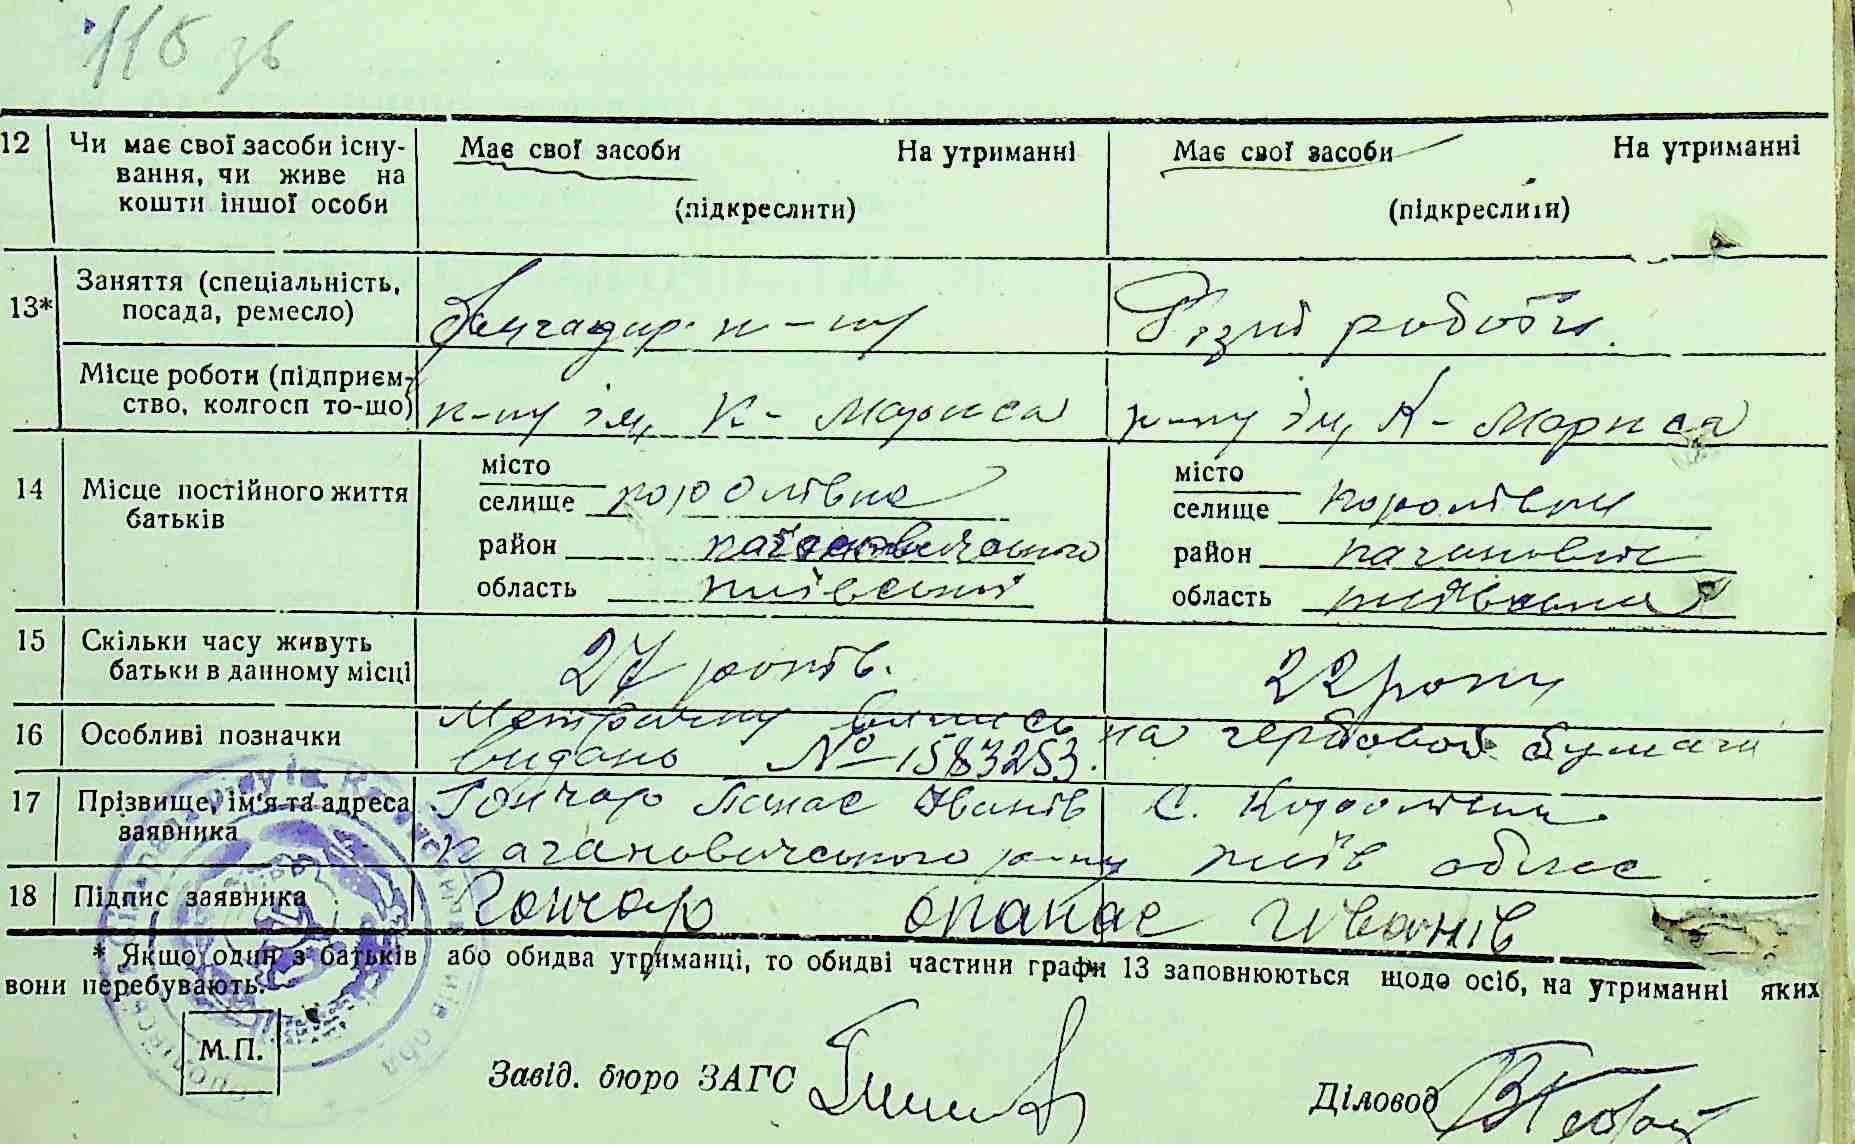 116 зв
12 Чи має свої засоби існу-
вання, чи живе на
кошти іншої особи
Має свої засоби На утриманні
(підкреслити)
Має свої засоби На утриманні
(підкреслити)
13* Заняття (спеціальність,
посада, ремесло)
Бригадир к-пу
Різні роботи.
Місце роботи (підприєм-
ство, колгосп то-що)
к-пу ім, К-Маркса
к-пу ім, К-Маркса
14 Місце постійного життя
батьків
місто
селище королівка
район кагановичського
область київської
місто
селище королівки
район каганович
область київська
15 Скільки часу живуть
батьки в данному місці
27 років.
22 роки
16 Особливі позначки
Метричну випись на гербовой бумаги
видано № 1583253.
17 Прізвище, ім'я та адреса
заявника
Гончар Панас Іванів С. Королівка
Кагановичського р-ну київ облас
18 Підпис заявника
Гончар опанас Іванів
* Якщо один з батьків або обидва утриманці, то обидві частини графи 13 заповнюються щодо осіб, на утриманні яких
вони перебувають.
М.П.
Завід. бюро ЗАГС
Діловод